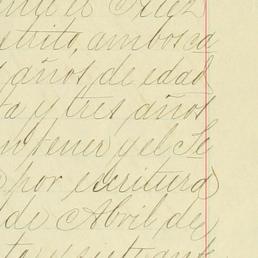 Juez
strito, ambos ca
años de edad
ta y tres años
tener y el Se
por escritura
de Abril de